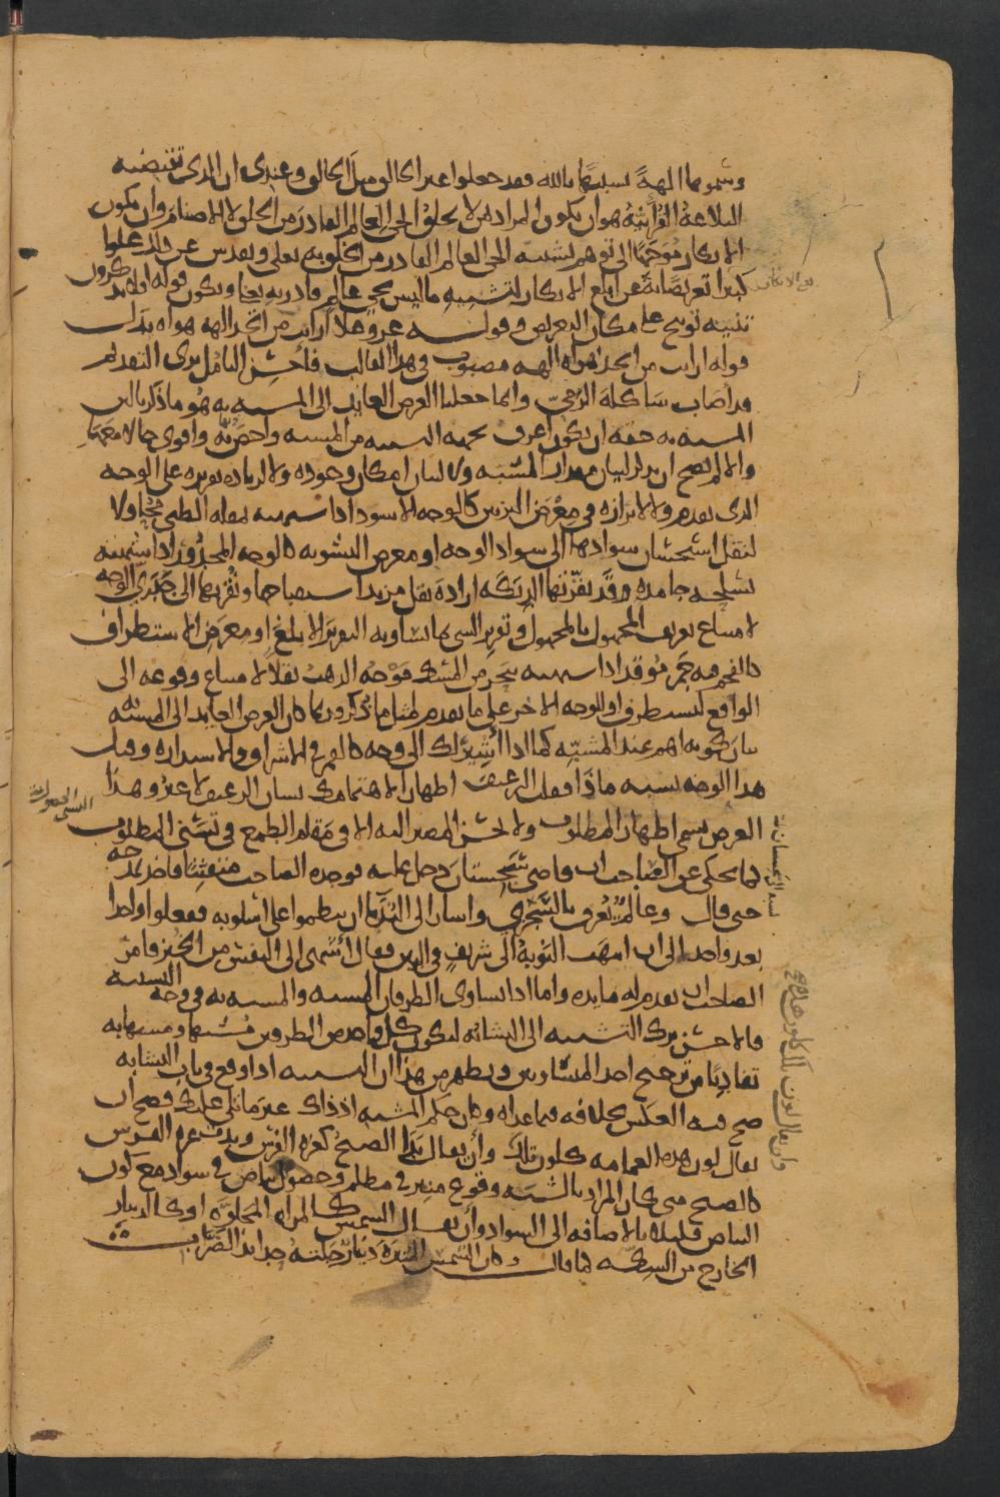 وسموها الهة تشبيها بالله فقد جعلوا غير الخالق مثل الخالق وعندي ان الذي تقتضيه
البلاغة القرآنية هو ان يكون المراد بمن لا يخلق الحي العالم القادر من الخلق لا الاصنام وان يكون
الانكار موجها الى توهم تشبيه الحي العالم القادر من الخلق به تعالى وتقدس عن ذلك علوا
كبيرا تعريضا به عن ابلغ الانكار لتشبيه ما ليس بحي عالم قادر به تعالى ويكون قوله افلا تذكرون
تنبيه توبيخ على مكان التعريض وقوله عز وعلا ارايت من اتخذ الهه هواه بدل
قوله ارايت من اتخذ هواه الهه مصبوب في هذا القالب فاحسن التامل ترى التقديم
قد اصاب شاكلة الرمي وانما جعلنا الغرض العائد الى المشبه به هو ما ذكرنا لان
المشبه به حقه ان يكون اعرف بجهة التشبيه من المشبه واخص بها واقوى حالا معها
والا لم يصح ان يذكر لبيان مقدار المشبه ولا لبيان امكان وجوده ولا لزيادة تقريره على الوجه
الذي تقدم ولا لابرازه في معرض التزيين كالوجه الاسود اذا شبهته بمقلة الظبي محاولا
لنقل استحسان سوادها الى سواد الوجه او معرض التشويه كالوجه المجدور اذا شبهته
بسلحة جامدة وقد نقرتها الديكة ارادة نقل مزيد استقباحها ونفرتها الى جدري الوجه
لامتناع تعريف المجهول بالمجهول وتقرير الشي بما يساويه التقرير الابلغ او معرض الاستطراف
كالفحم فيه جمر موقد اذا شبهته ببحر من المسك موجه الذهب نقلا لامتناع وقوعه الى
الواقع ليستطرف او للوجه الاخر على ما تقدم لمثل ما ذكر وربما كان الغرض العائد الى المشبه به
بيان كونه اهم عند المشبه كما اذا اشير لك الى وجه كالقمر في الاشراق والاستدارة وقيل
هذا الوجه يشبه ماذا فقلت الرغيف اظهارا لاهتمامك بشان الرغيف لا غير وهذا
الغرض يسمى اظهار المطلوب ولا يحسن المصير اليه الا في مقام الطمع في تسني المطلوب
كما يحكى عن الصاحب ان قاضي سجستان دخل عليه فوجده الصاحب متفننا فاخذ يمدحه
حتى قال وعالم يعرف بالسجزي واشار الى الندماء ان ينظموا على اسلوبه ففعلوا واحدا
بعد واحد الى ان انتهت النوبة الى شريف في البين فقال اشهى الى النفس من الخبز فامر
الصاحب ان يقدم له مائدة واما اذا تساوى الطرفان المشبه والمشبه به في وجه التشبيه
فالاحسن ترك التشبيه الى التشابه ليكون كل واحد من الطرفين مشبها ومشبها به
تفاديا من ترجيح احد المتساويين ويظهر من هذا ان التشبيه اذا وقع في باب التشابه
صح فيه العكس بخلافه فيما عداه وكان حكم المشبه به اذ ذاك غير ما تلي عليك فصح ان
يقال لون هذه العمامة كلون تلك وان يقال بدا الصبح كغرة الفرس وبدت غرة الفرس
كالصبح متى كان المراد بالشبه وقوع منير في مظلم وحصول بياض في سواد مع كون
البياض قليلا بالاضافة الى السواد وان يقال الشمس كالمراة المجلوة او كالدينار
الخارج من السكة كما قال وكان الشمس المنيرة دينار جلته حدائد الضراب